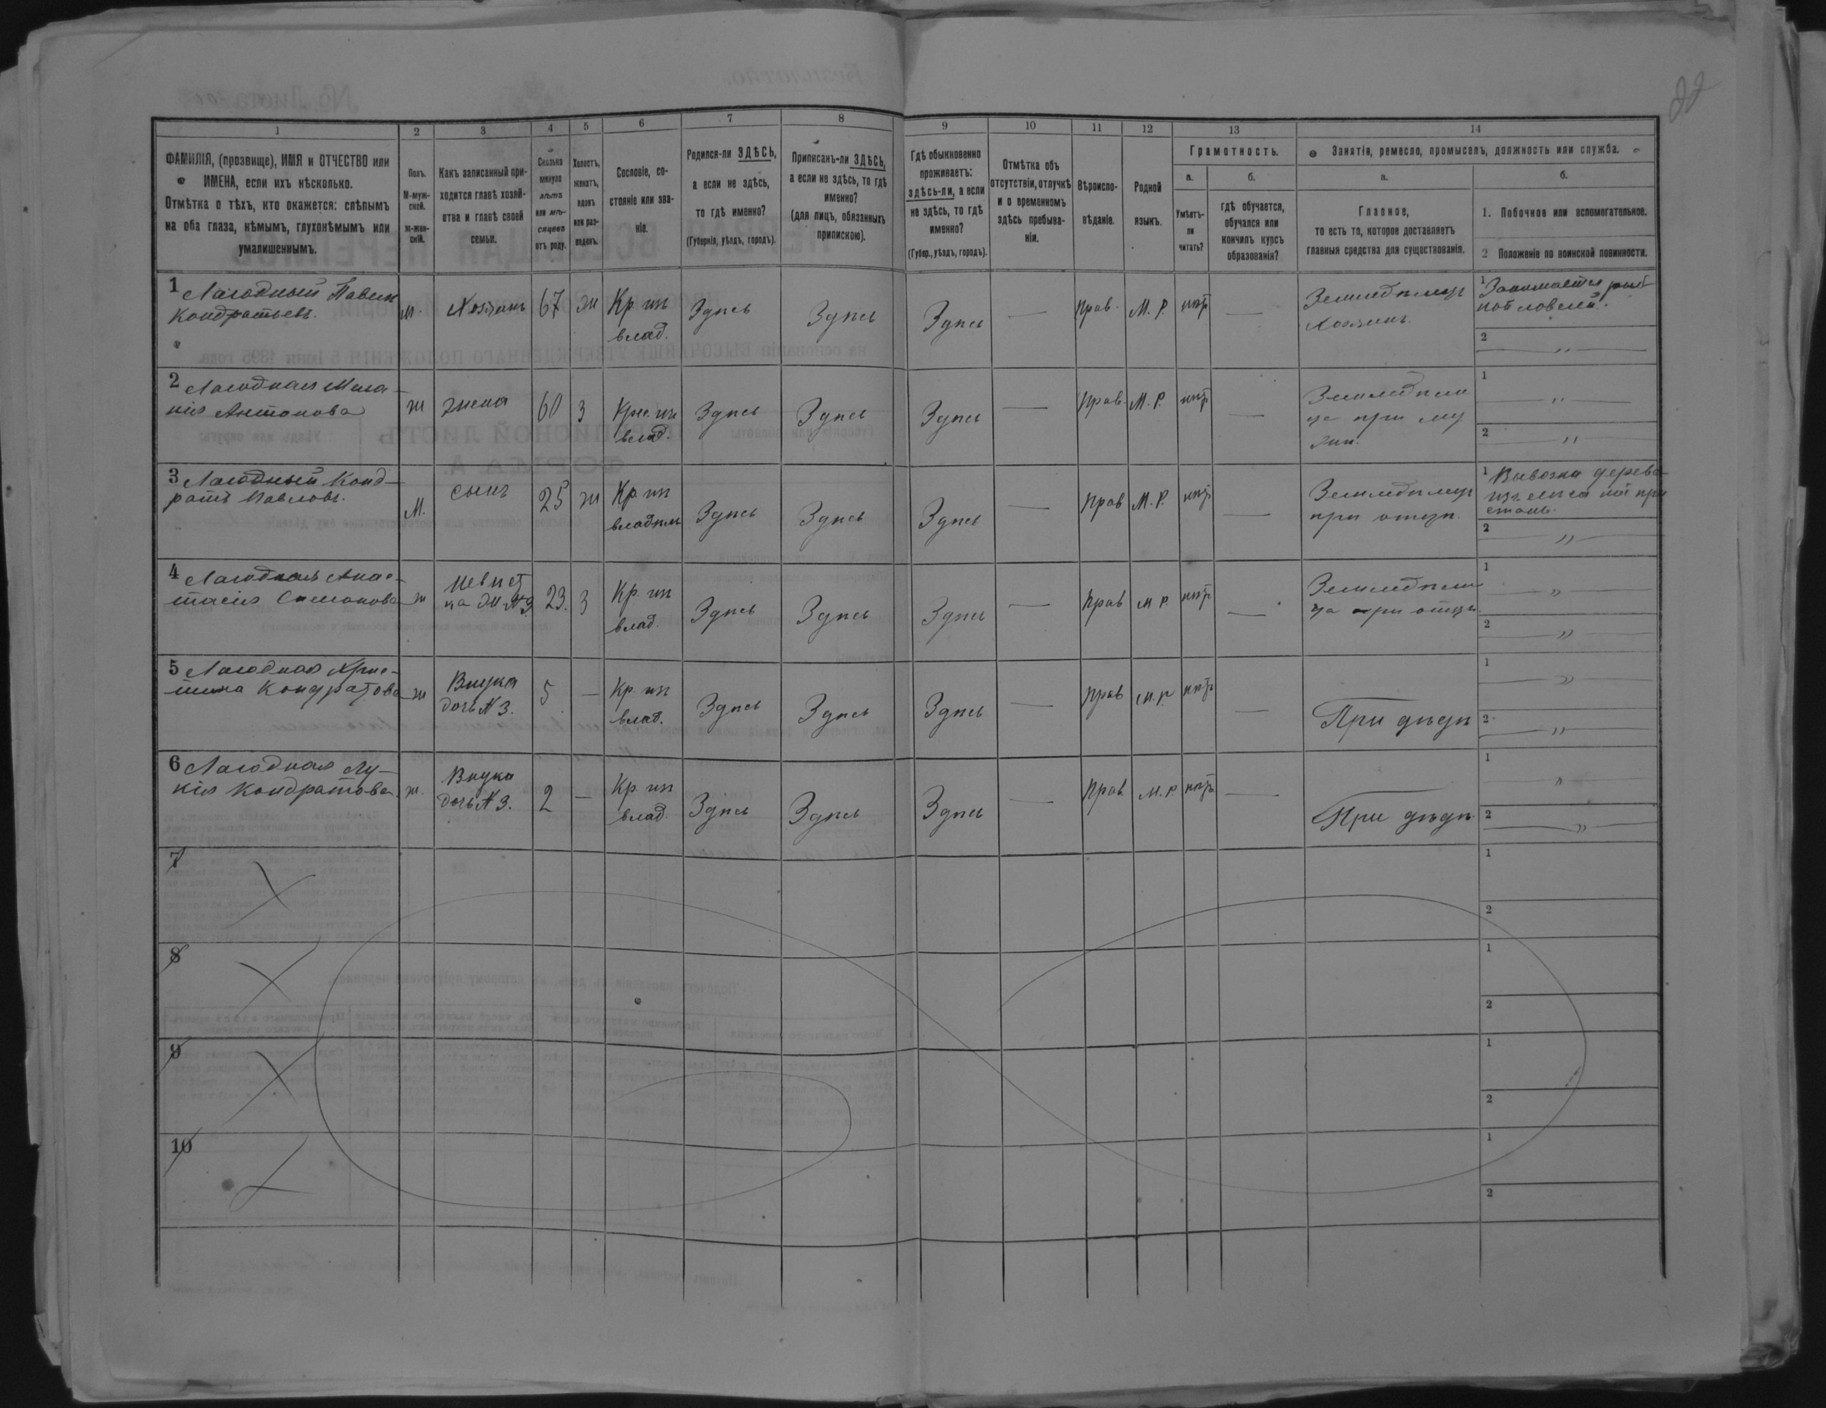 22
1
2
3
4
5
6
7
8
9
10
11
12
13
14
ФАМИЛІЯ, (прозвище), ИМЯ и ОТЧЕСТВО или
ИМЕНА, если ихъ нѣсколько.
Отмѣтка о тѣхъ, кто окажется: слѣпымъ
на оба глаза, нѣмымъ, глухонѣмымъ или
умалишеннымъ.
Полъ.
М-муж-
ской.
Ж-жен-
скій.
Какъ записанный при-
ходится главѣ хозяй-
ства и главѣ своей
семьи.
Сколько
минуло
лѣтъ
или мѣ-
сяцевъ
отъ роду.
Холостъ,
женатъ,
вдовъ
или раз-
веденъ.
Сословіе, со-
стояніе или зва-
ніе.
Родился-ли ЗДѢСЬ,
а если не здѣсь,
то гдѣ именно?
(Губернія, уѣздъ, городъ).
Приписанъ-ли ЗДѢСЬ,
а если не здѣсь, то гдѣ
именно?
(для лицъ, обязанныхъ
припискою).
Гдѣ обыкновенно
проживаетъ:
здѣсь-ли, а если
не здѣсь, то гдѣ
именно?
(Губер., уѣздъ, городъ).
Отмѣтка объ
отсутствіи, отлучкѣ
и о временномъ
здѣсь пребыва-
ніи.
Вѣроиспо-
вѣданіе.
Родной
языкъ.
Грамотность.
а.
Умѣетъ-
ли
читать?
б.
гдѣ обучается,
обучался или
кончилъ курсъ
образованія?
Занятіе, ремесло, промыселъ, должность или служба.
а.
Главное,
то есть то, которое доставляетъ
главныя средства для существованія.
б.
1. Побочное или вспомогательное.
2 Положеніе по воинской повинности.
1 Лагодный Павелъ
Кондратьевъ.
м. Хозяинъ 67 ж Кр. изъ
влад. Здѣсь Здѣсь Здѣсь — Прав. М. Р. нѣтъ
Земледѣлецъ
Хозяинъ
1 Занимается рыб-
ной ловлей.
2 — „ —
2 Лагодная Мела-
нія Антонова
ж жена 60 з Крес. изъ
влад. Здѣсь Здѣсь Здѣсь — Прав. М. Р. нѣтъ —
при му
1 — „ —
2 — „ —
3 Лагодный Конд-
ратъ Павловъ.
М. сынъ 25 ж Кр. изъ
Здѣсь Здѣсь Здѣсь — Прав М. Р. нѣтъ —
Земледѣлецъ
при отцѣ
1 Вывозка дерева
изъ лѣса на при
стань.
2 — „ —
4 Лагодная Анас-
тасія Симонова
ж невѣст
ка жен. № 3 23. з Кр. изъ
влад. Здѣсь Здѣсь Здѣсь — Прав М. Р. нѣтъ —
ца при отцѣ
1 — „ —
2 — „ —
5 Лагодная Хрис-
тина Кондратова
ж Внука
дочь № 3. 5 — Кр. изъ
влад. Здѣсь Здѣсь Здѣсь — Прав М. Р. нѣтъ —
При дѣдѣ
1 — „ —
2 — „ —
6 Лагодная Лу-
кія Кондратова
ж. Внука
дочь № 3. 2 — Кр. изъ
влад. Здѣсь Здѣсь Здѣсь — Прав М. Р. нѣтъ —
При дѣдѣ
1 — „ —
2 — „ —
7
1
2
8
1
2
9
1
2
10
1
2